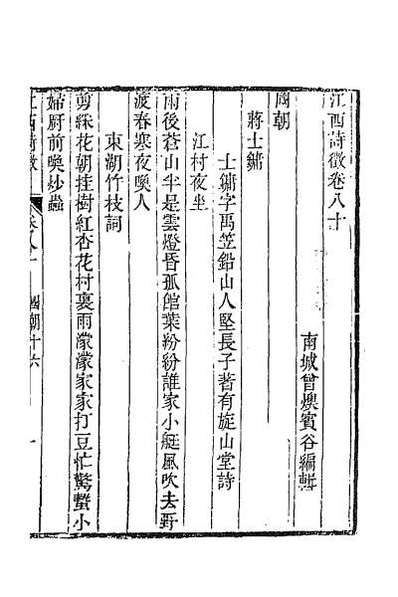 江西詩徵卷八十
南城曾燠賓谷編輯
國朝
蔣士鏞
士鏞字禹笠鉛山人堅長子著有旋山堂詩
江村夜坐
雨後蒼山半是雲燈昏孤館葉紛紛誰家小艇風吹去野
渡春寒夜喚人
東湖竹枝詞
剪綵花朝挂樹紅杏花村裏雨濛濛家家打豆忙驚蟄小
婦厨前喚炒蟲
江西詩徵 卷八十 國朝十六 一